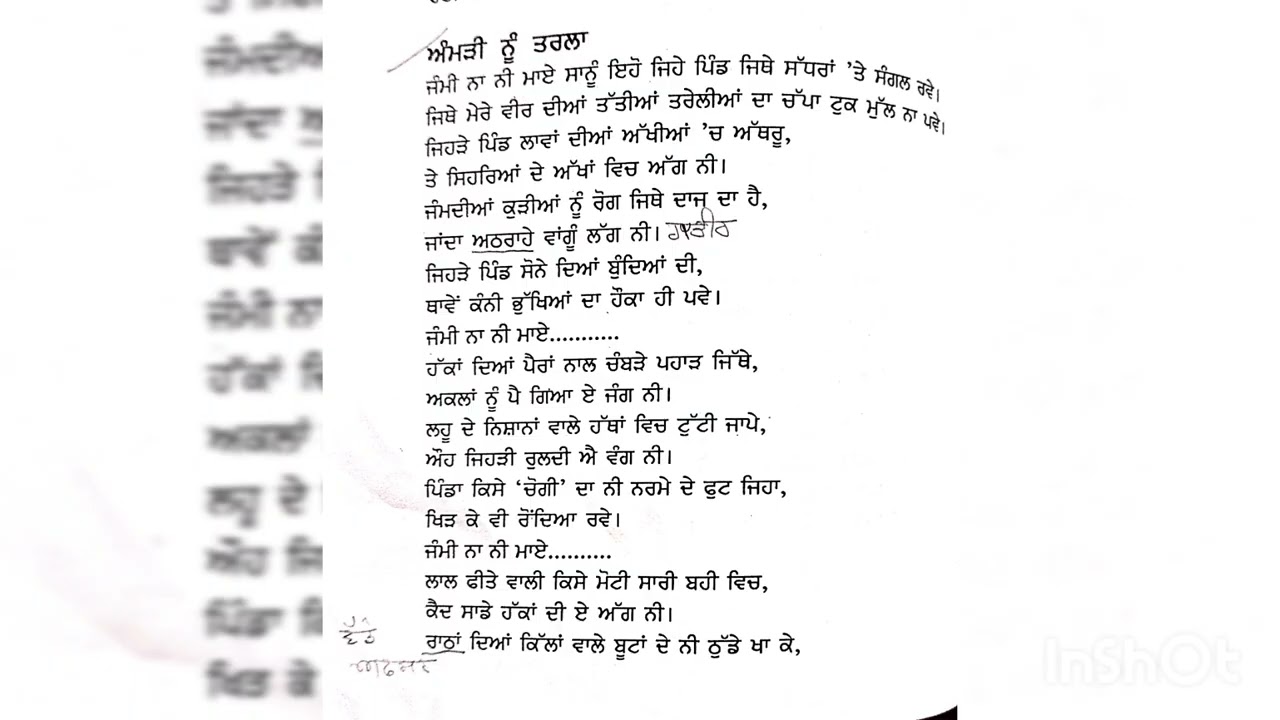 ਅੰਮੜੀ ਨੂੰ ਤਰਲਾ
ਜੰਮੀ ਨਾ ਨੀ ਮਾਏ ਸਾਨੂੰ ਇਹੋ ਜਿਹੇ ਪਿੰਡ ਜਿਥੇ ਸੱਧਰਾਂ ’ਤੇ ਸੰਗਲ ਰਵੇ।
ਜਿਥੇ ਮੇਰੇ ਵੀਰ ਦੀਆਂ ਤੱਤੀਆਂ ਤਰੇਲੀਆਂ ਦਾ ਚੱਪਾ ਟੁਕ ਮੁੱਲ ਨਾ ਪਵੇ।
ਜਿਹੜੇ ਪਿੰਡ ਲਾਵਾਂ ਦੀਆਂ ਅੱਖੀਆਂ ’ਚ ਅੱਥਰੂ,
ਤੇ ਸਿਹਰਿਆਂ ਦੇ ਅੱਖਾਂ ਵਿਚ ਅੱਗ ਨੀ।
ਜੰਮਦੀਆਂ ਕੁੜੀਆਂ ਨੂੰ ਰੋਗ ਜਿਥੇ ਦਾਜ ਦਾ ਹੈ,
ਜਾਂਦਾ ਅਠਰਾਹੇ ਵਾਂਗੂੰ ਲੱਗ ਨੀ।
ਜਿਹੜੇ ਪਿੰਡ ਸੋਨੇ ਦਿਆਂ ਬੁੰਦਿਆਂ ਦੀ,
ਥਾਵੇਂ ਕੰਨੀ ਭੁੱਖਿਆਂ ਦਾ ਹੌਕਾ ਹੀ ਪਵੇ।
ਜੰਮੀ ਨਾ ਨੀ ਮਾਏ...........
ਹੱਕਾਂ ਦਿਆਂ ਪੈਰਾਂ ਨਾਲ ਚੰਬੜੇ ਪਹਾੜ ਜਿੱਥੇ,
ਅਕਲਾਂ ਨੂੰ ਪੈ ਗਿਆ ਏ ਜੰਗ ਨੀ।
ਲਹੂ ਦੇ ਨਿਸ਼ਾਨਾਂ ਵਾਲੇ ਹੱਥਾਂ ਵਿਚ ਟੁੱਟੀ ਜਾਪੇ,
ਔਹ ਜਿਹੜੀ ਰੁਲਦੀ ਐ ਵੰਗ ਨੀ।
ਪਿੰਡਾ ਕਿਸੇ ‘ਚੋਗੀ’ ਦਾ ਨੀ ਨਰਮੇ ਦੇ ਫੁਟ ਜਿਹਾ,
ਖਿੜ ਕੇ ਵੀ ਰੋਂਦਿਆ ਰਵੇ।
ਜੰਮੀ ਨਾ ਨੀ ਮਾਏ..........
ਲਾਲ ਫੀਤੇ ਵਾਲੀ ਕਿਸੇ ਮੋਟੀ ਸਾਰੀ ਬਹੀ ਵਿਚ,
ਕੈਦ ਸਾਡੇ ਹੱਕਾਂ ਦੀ ਏ ਅੱਗ ਨੀ।
ਰਾਠਾਂ ਦਿਆਂ ਕਿੱਲਾਂ ਵਾਲੇ ਬੂਟਾਂ ਦੇ ਨੀ ਠੁੱਡੇ ਖਾ ਕੇ,
InShOt